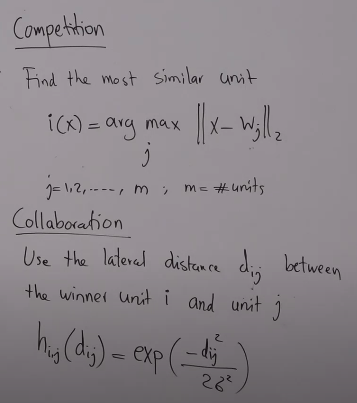 Competition
Find the most similar unit
i(x) = arg max ‖x - Wj‖₂
j
j=1,2,----, m ; m = #units
Collaboration
Use the lateral distance dij between
the winner unit i and unit j
hij(dij) = exp(-dij² / 2δ²)